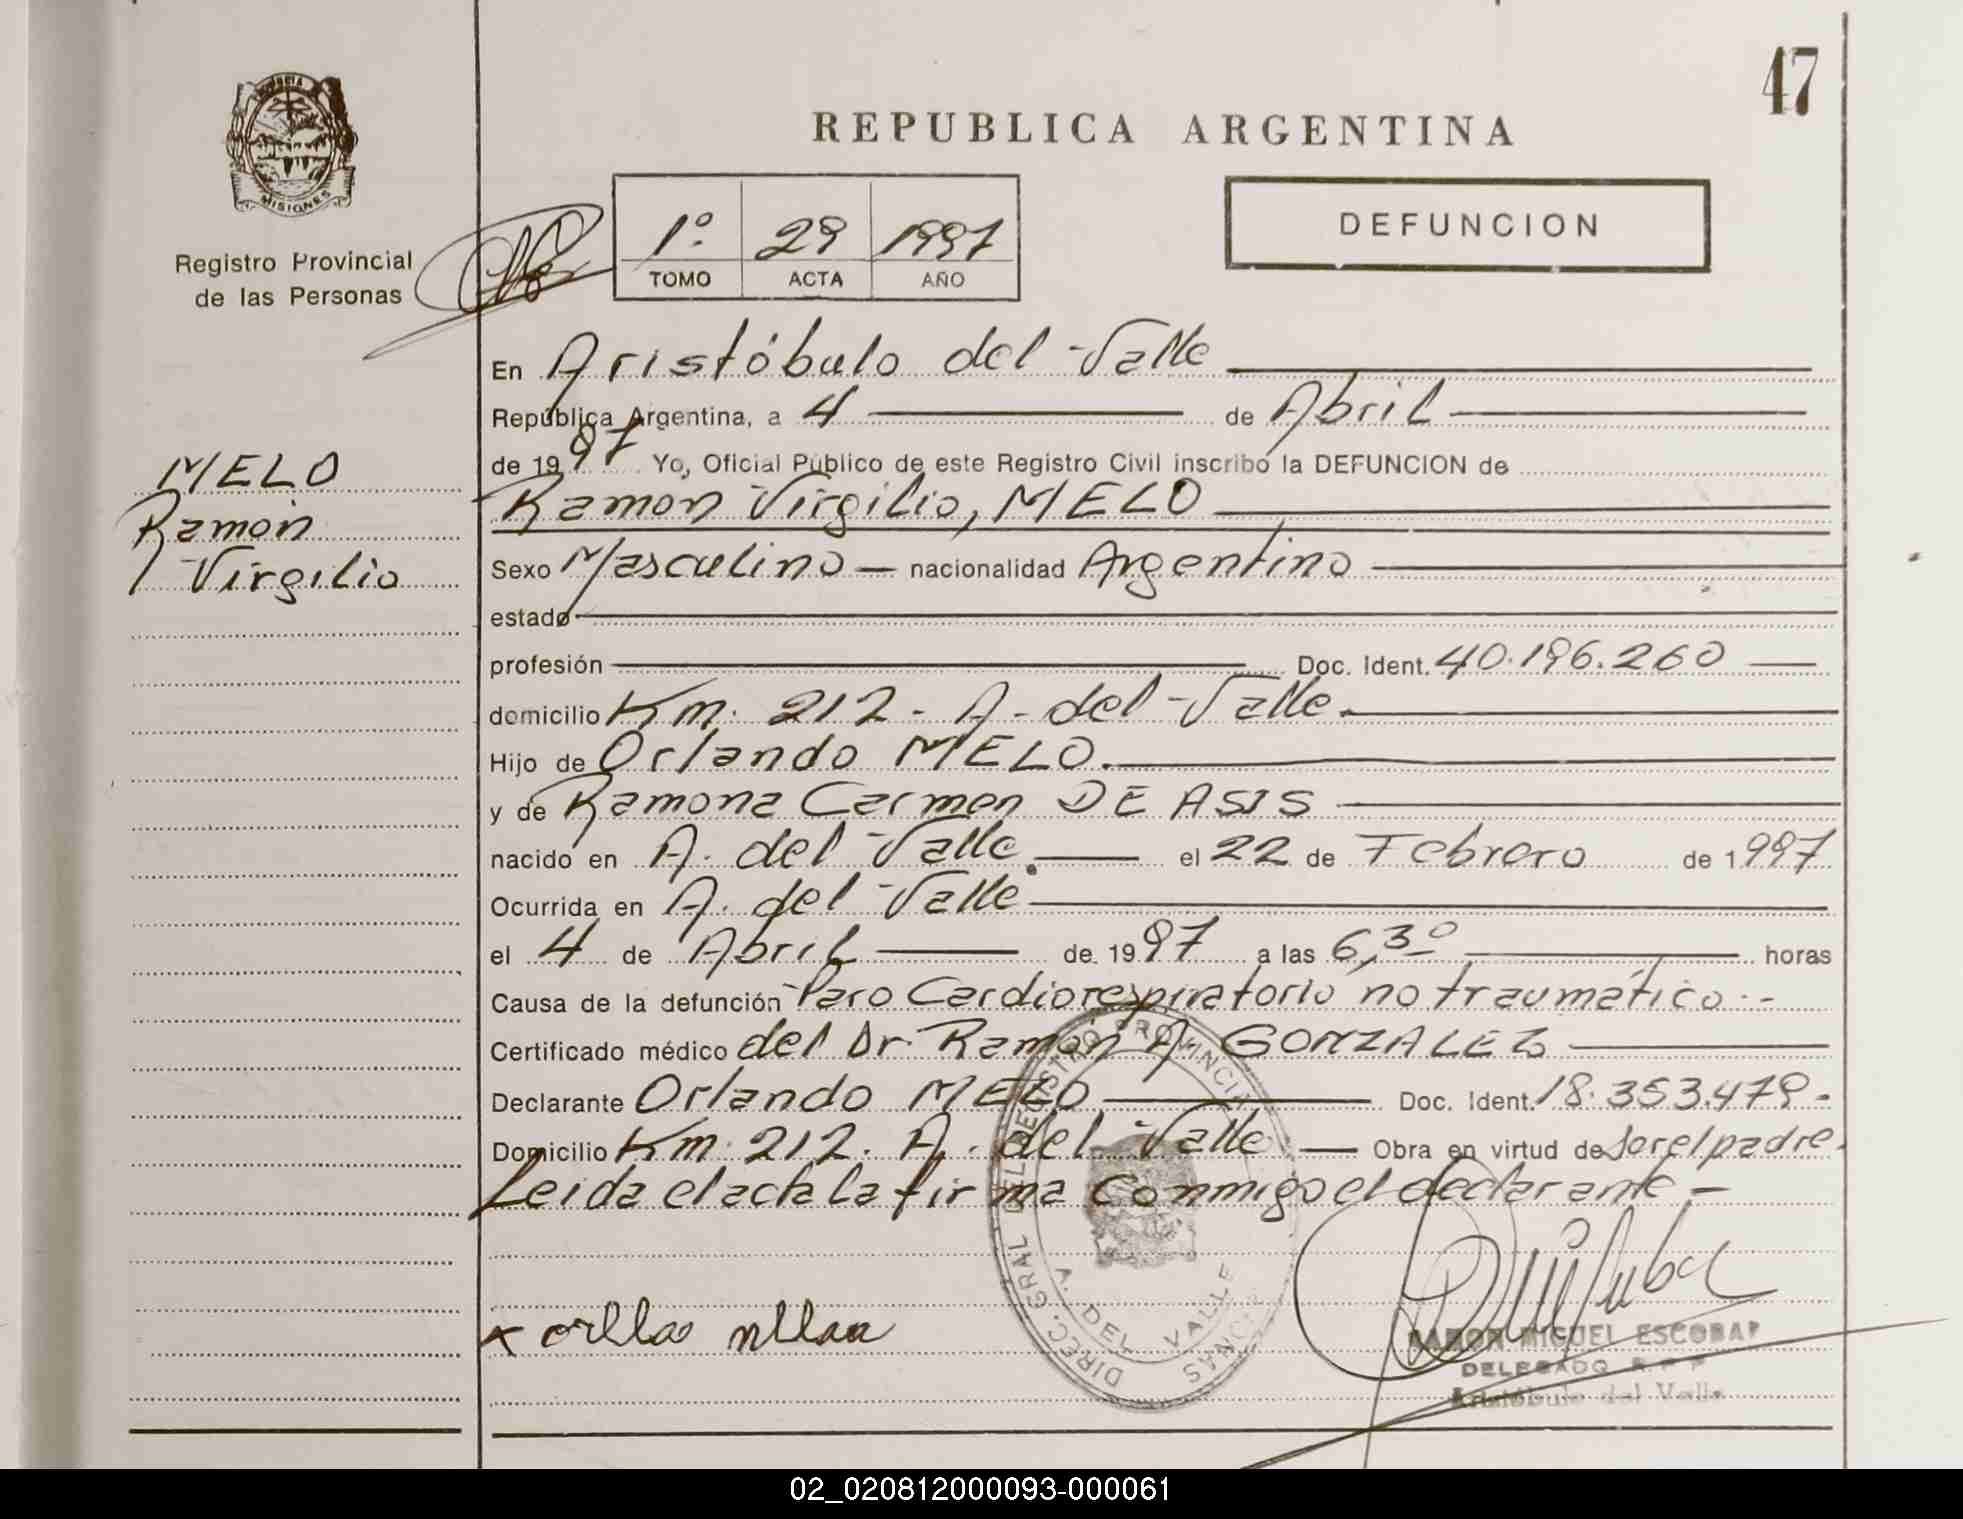 47
REPUBLICA ARGENTINA
PROVINCIA
MISIONES
Registro Provincial
de las Personas
1º 29 1997
TOMO ACTA AÑO
DEFUNCION
En Aristóbulo del Valle
República Argentina, a 4 de Abril
de 1997 Yo, Oficial Público de este Registro Civil inscribo la DEFUNCION de
Ramón Virgilio, MELO
MELO
Ramón
Virgilio
Sexo Masculino — nacionalidad Argentino
estado
profesión Doc. Ident. 40.196.260
domicilio Km. 212 - A - del Valle.
Hijo de Orlando MELO.
y de Ramona Carmen DE ASIS
nacido en A. del Valle. el 22 de Febrero de 1997
Ocurrida en A. del Valle
el 4 de Abril de 1997 a las 6,30 horas
Causa de la defunción Paro Cardiorespiratorio no traumático.-
Certificado médico del Dr. Ramón A. GONZALEZ
Declarante Orlando MELO Doc. Ident. 18.353.479.
Domicilio Km. 212. A. del Valle — Obra en virtud de ser el padre.
Leida el acta la firma conmigo el declarante -
DIREC. GRAL DEL REGISTRO PROVINCIAL
A. DEL VALLE
RAMON MIGUEL ESCOBAR
DELEGADO R.P.P
Aristóbulo del Valle
02_020812000093-000061